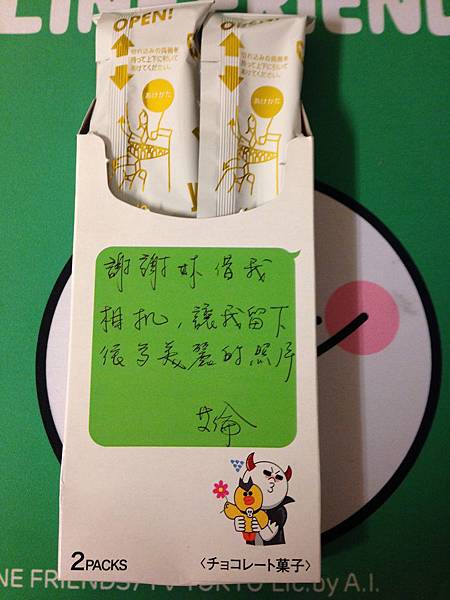 LINE FRIEND
OPEN!
切り込みの両側を
持って上下に引いて
あけてください。
あけかた
切り込みの両側を
持って上下に引いて
あけてください。
あけかた
謝謝妹借我
相机,讓我留下
很多美麗的照片
艾倫
2PACKS
〈チョコレート菓子〉
NE FRIENDS/TV TOKYO Lic.by A.I.